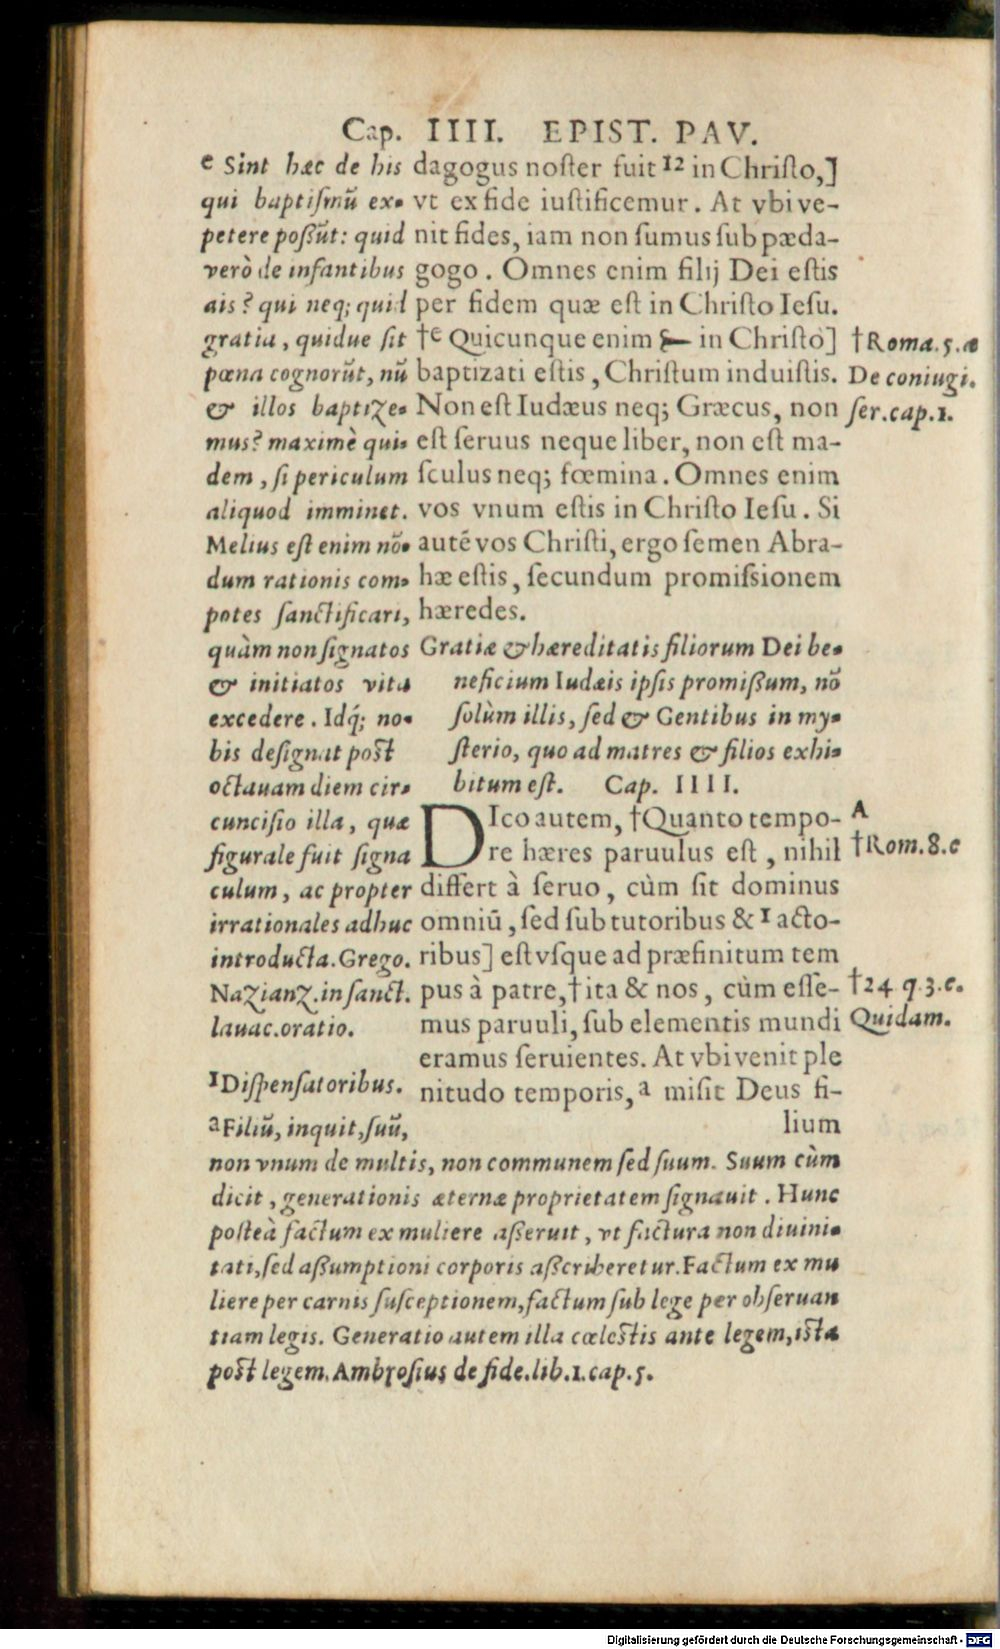 Cap. IIII. EPIST. PAV.
dagogus noſter fuit 12 in Chriſto,]
vt ex fide iuſtificemur. At vbi ve-
nit fides, iam non ſumus ſub pæda-
gogo. Omnes enim filij Dei eſtis
per fidem quæ eſt in Chriſto Ieſu.
†e Quicunque enim in Chriſto]
baptizati eſtis, Chriſtum induiſtis.
Non eſt Iudæus neq; Græcus, non
eſt ſeruus neque liber, non eſt ma-
ſculus neq; fœmina. Omnes enim
vos vnum eſtis in Chriſto Ieſu. Si
autẽ vos Chriſti, ergo ſemen Abra-
hæ eſtis, ſecundum promiſsionem
hæredes.
Gratiæ & hæreditatis filiorum Dei be-
neficium Iudæis ipſis promißum, nõ
ſolùm illis, ſed & Gentibus in my-
ſterio, quo ad matres & filios exhi-
bitum eſt. Cap. IIII.
DIco autem, †Quanto tempo-
re hæres paruulus eſt, nihil
differt à ſeruo, cùm ſit dominus
omniũ, ſed ſub tutoribus & 1 acto-
ribus] eſt vſque ad præfinitum tem
pus à patre, † ita & nos, cùm eſſe-
mus paruuli, ſub elementis mundi
eramus ſeruientes. At vbi venit ple
nitudo temporis, a miſit Deus fi-
lium
e Sint hæc de his
qui baptiſmũ ex-
petere poßũt: quid
verò de infantibus
ais? qui neq; quid
gratia, quidue ſit
pœna cognorũt, nũ
& illos baptize-
mus? maximè qui-
dem, ſi periculum
aliquod imminet.
Melius eſt enim nõ-
dum rationis com-
potes ſanctificari,
quàm non ſignatos
& initiatos vita
excedere. Idq́; no-
bis deſignat poſt
octauam diem cir-
cunciſio illa, quæ
figurale fuit ſigna
culum, ac propter
irrationales adhuc
introducta. Grego.
Nazianz. in ſanct.
lauac. oratio.
1 Diſpenſatoribus.
a Filiũ, inquit, ſuũ,
non vnum de multis, non communem ſed ſuum. Suum cùm
dicit, generationis æternæ proprietatem ſignauit. Hunc
poſteà factum ex muliere aßeruit, vt factura non diuini-
tati, ſed aßumptioni corporis aßcriberetur. Factum ex mu
liere per carnis ſuſceptionem, factum ſub lege per obſeruan
tiam legis. Generatio autem illa cœleſtis ante legem, iſta
poſt legem. Ambroſius de fide. lib. 1. cap. 5.
†Roma. 5. a
De coniugi.
ſer. cap. 1.
A
†Rom. 8. c
†24 q. 3. c.
Quidam.
Digitalisierung gefördert durch die Deutsche Forschungsgemeinschaft - DFG